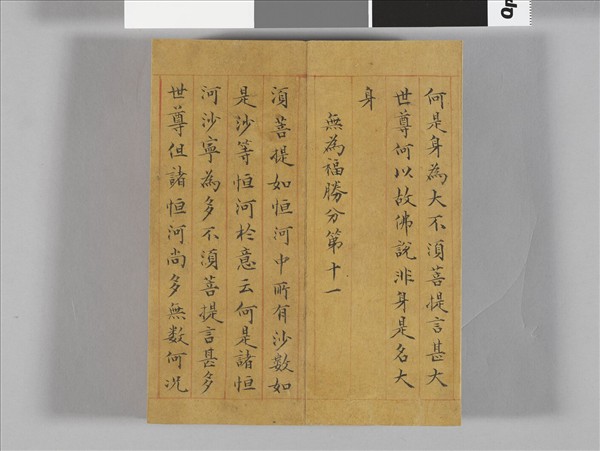 何是身為大不須菩提言甚大
世尊何以故佛說非身是名大
身
無為福勝分第十一
須菩提如恒河中所有沙數如
是沙等恒河於意云何是諸恒
河沙寧為多不須菩提言甚多
世尊但諸恒河尚多無數何況